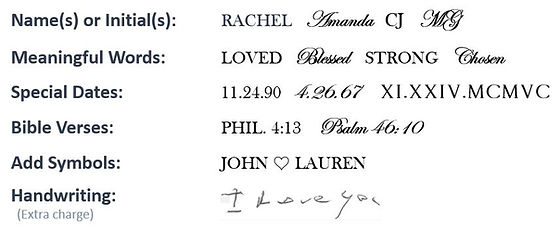 Name(s) or Initial(s): RACHEL Amanda CJ MG
Meaningful Words: LOVED Blessed STRONG Chosen
Special Dates: 11.24.90 4.26.67 XI.XXIV.MCMVC
Bible Verses: PHIL. 4:13 Psalm 46:10
Add Symbols: JOHN ♡ LAUREN
Handwriting: I Love you
(Extra charge)